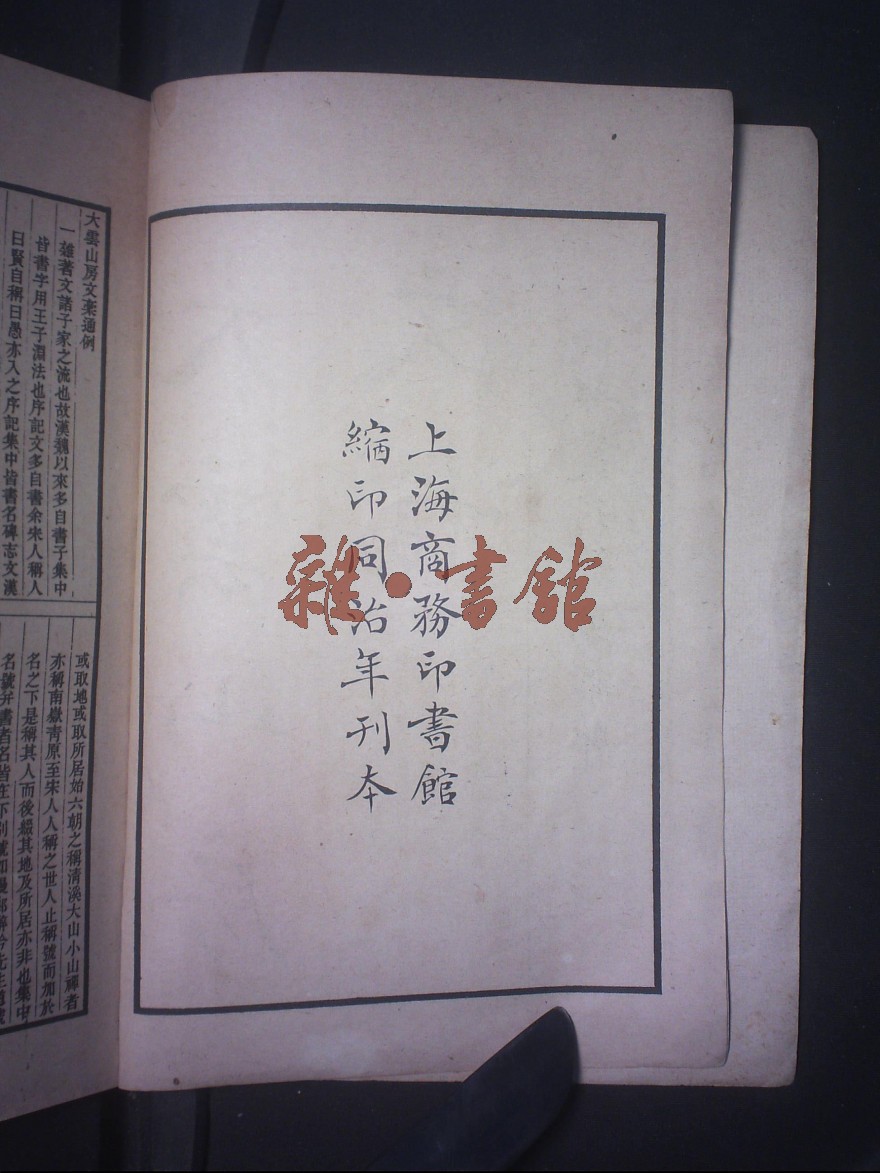 上海商務印書館
縮印同治年刊本
雜·書館
大雲山房文稾通例
一雄著文諸子家之流也故漢魏以來多自書子集中
皆書字用王子淵法也序記文多自書余宋人稱人
曰賢自稱曰愚亦入之序記集中皆書名碑志文漢
或取地或取所居始六朝之稱淸溪大山小山禪者
亦稱南嶽靑原至宋人人稱之世人止稱號而加於
名之下是稱其人而後綴其地及所居亦非也集中